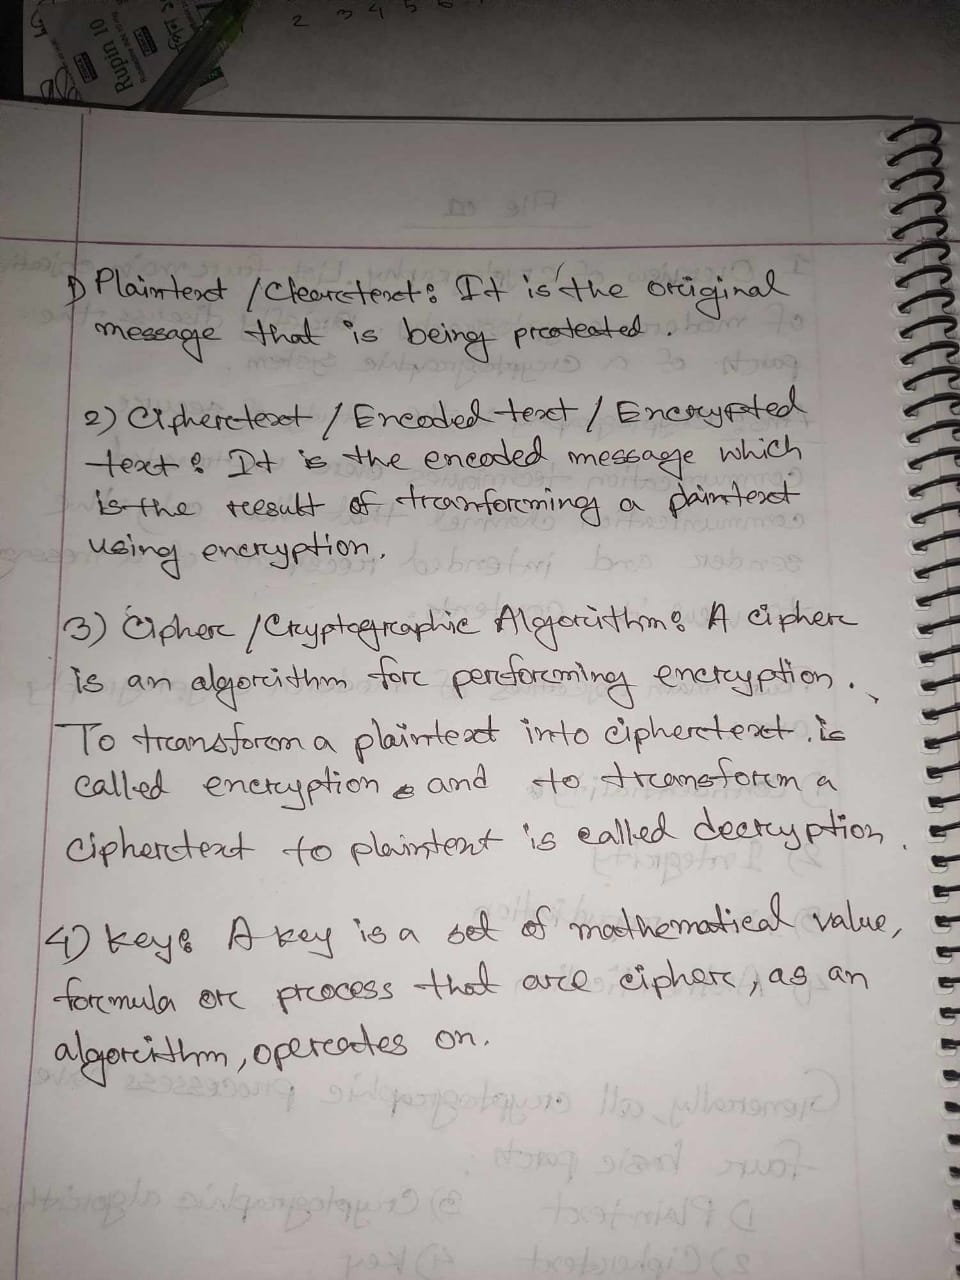 2 3 4 5 6
Rupin 10
1) Plaintext / Cleartext : It is the original
message that is being proteated .
2) Ciphertext / Encoded text / Encrypted
text : It is the encoded message which
is the result of tranforming a plaintext
using encryption.
3) Cipher / Cryptographic Algorithm : A cipher
is an algorithm for performing encryption .
To transform a plaintext into ciphertext . is
called encryption and to transform a
ciphertext to plaintext is called decryption .
4) Key : A key is a set of mathematical value,
formula or process that are cipher, as an
algorithm, operates on.